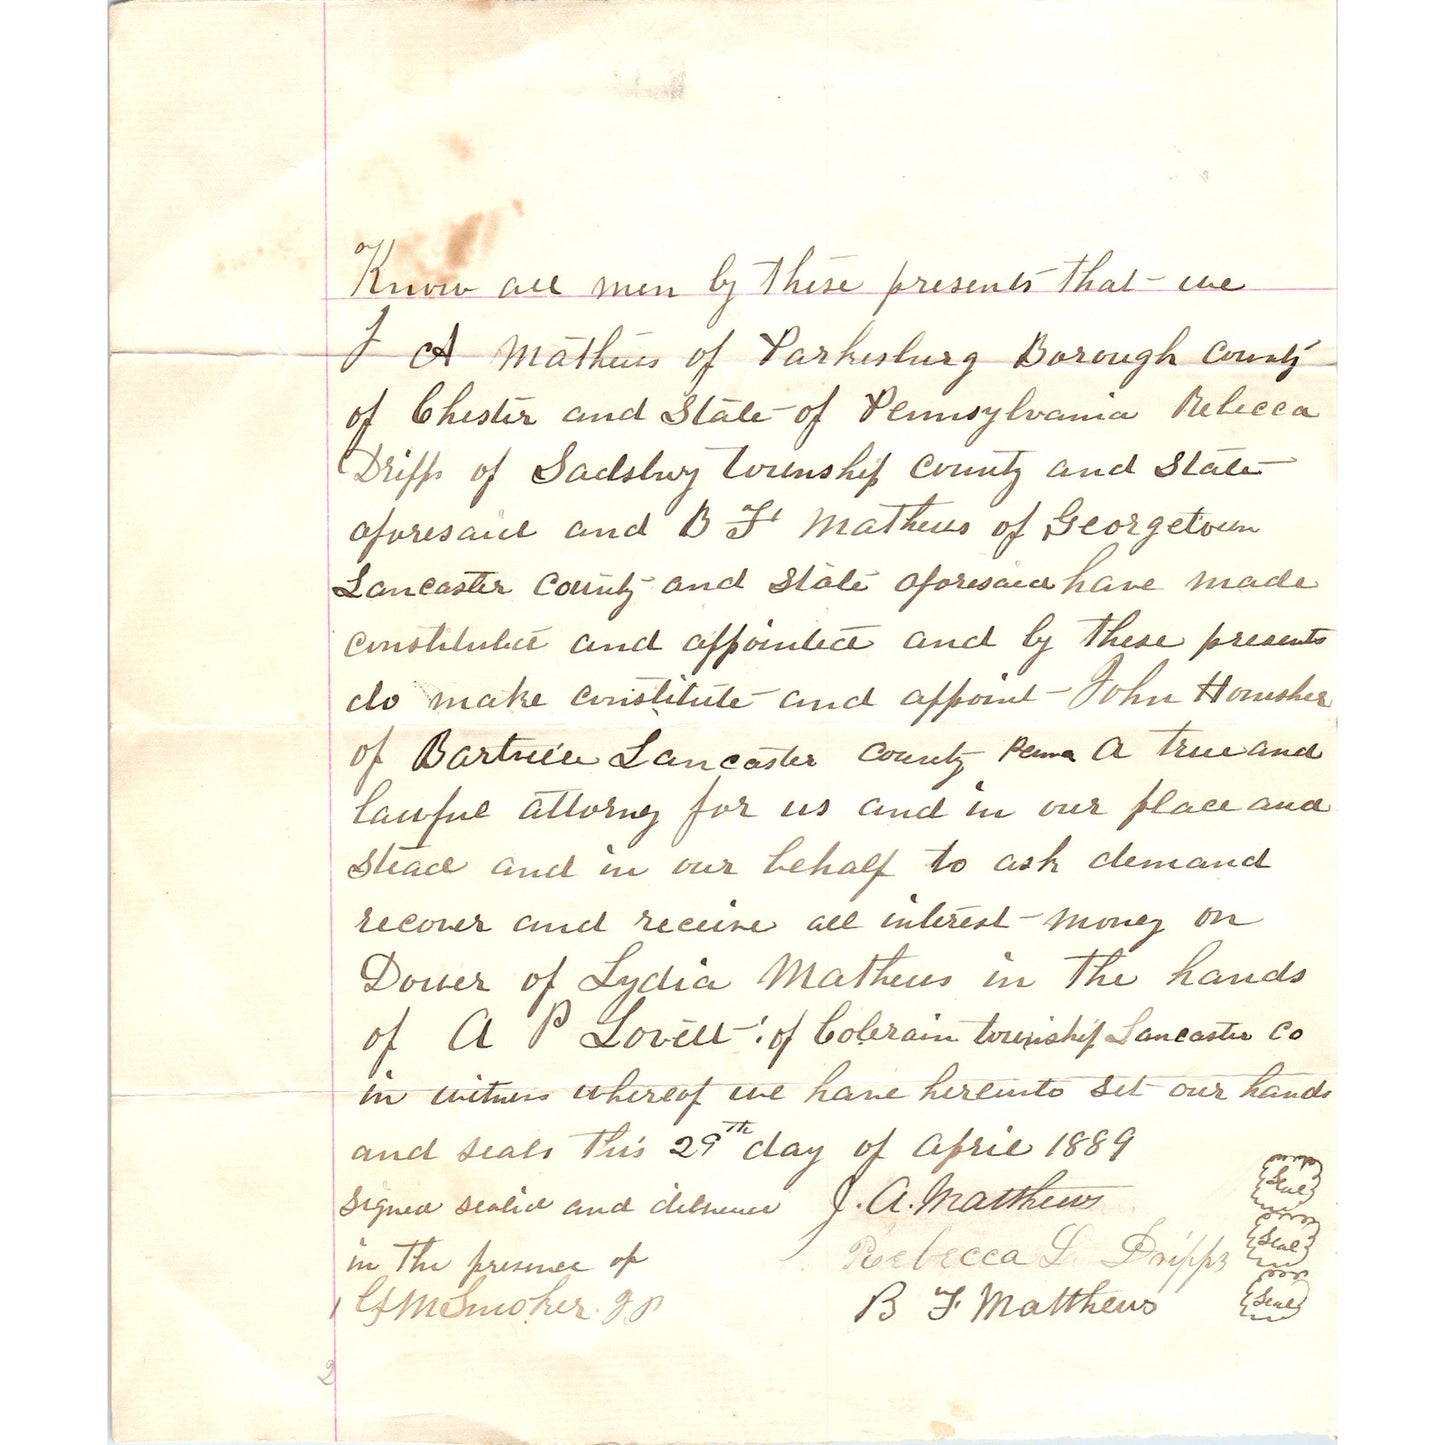 Know all men by these presents that we
J A Mathews of Parkesburg Borough County
of Chester and State of Pennsylvania Rebecca
Dripps of Sadsbury township County and State
aforesaid and B F Mathews of Georgetown
Lancaster County and State aforesaid have made
constituted and appointed and by these presents
do make constitute and appoint John
of Lancaster County Penna A true and
lawful attorney for us and in our place and
stead and in our behalf to ask demand
recover and receive all interest money on
Dower of Lydia Mathews in the hands
of A P Lovett of Colerain township Lancaster Co
in witness whereof we have hereinto set our hands
and seals this 29th day of April 1889
signed sealed and delivered J. A. Matthews Seal
in the presence of Rebecca L Dripps Seal
Smoker J P B F Matthews Seal
2